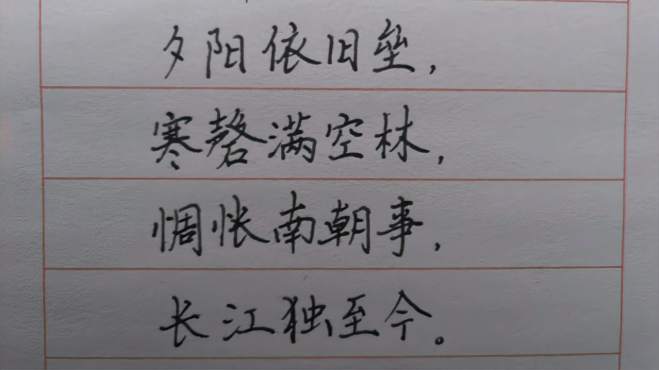 夕阳依旧垒，
寒磬满空林，
惆怅南朝事，
长江独至今。